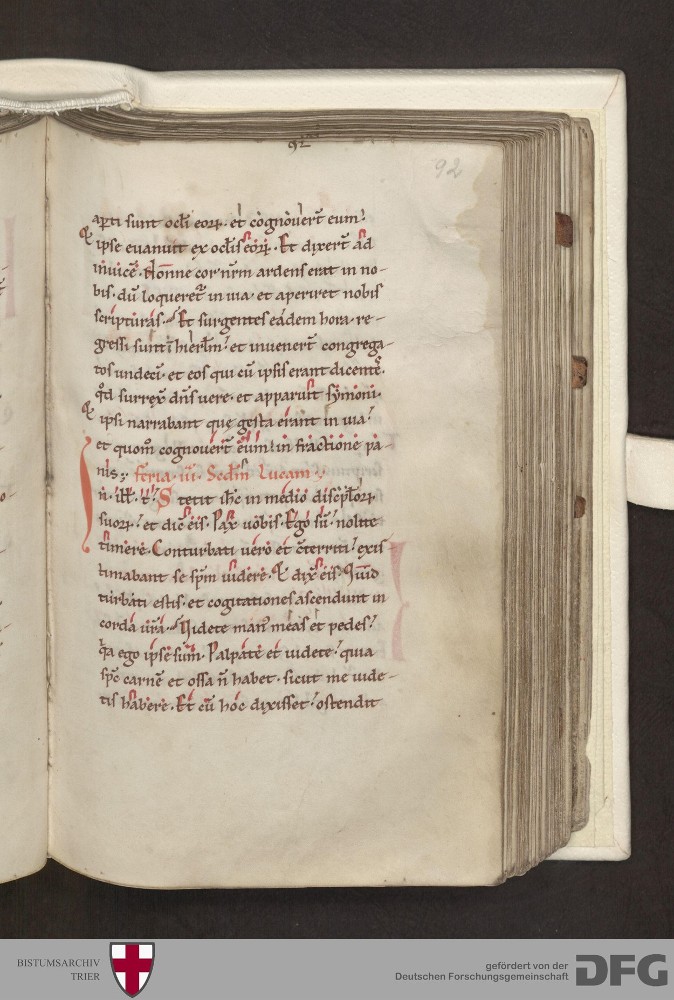 92
92
aꝑti sunt ocĺi eoꝝ. et cognouert̄ eum.
& ipse euanuit ex ocĺis eoꝝ. Et dixert̄ ad
inuicē. Nonne cor nr̄m ardens erat in no-
bis. dū loqueret᷑ in uia. et aperiret nobis
scripturas. Et surgentes eadem hora. re-
gressi sunt ī hierłm. et inuenert̄ congrega-
tos undeci. et eos qui cū ipsis erant dicentes.
qd̄ surrex̄ dn̄s uere. et apparuit symoni.
& ipsi narrabant quę gesta erant in uia.
et quom̄ cognouert̄ eum in fractione pa-
nis. feria. iii. Scdm̄ Lucam.
Stetit ihc̄ in medio discipĺoꝝ
suoꝝ. et dic̄ eis. Pax uobis. Ego sū. nolite
timere. Conturbati uero et c̄territi. exis
timabant se sp̄m uidere. & dix̄ eis. Quid
turbati estis. et cogitationes ascendunt in
corda ur̄a. Uidete man᷒ meas et pedes.
qa ego ipse sum. Palpate et uidete. quia
spc̄ carnē et ossa n̄ habet. sicut me uide-
tis habere. Et cū hoc dixisset. ostendit
BISTUMSARCHIV
TRIER
gefördert von der
Deutschen Forschungsgemeinschaft
DFG